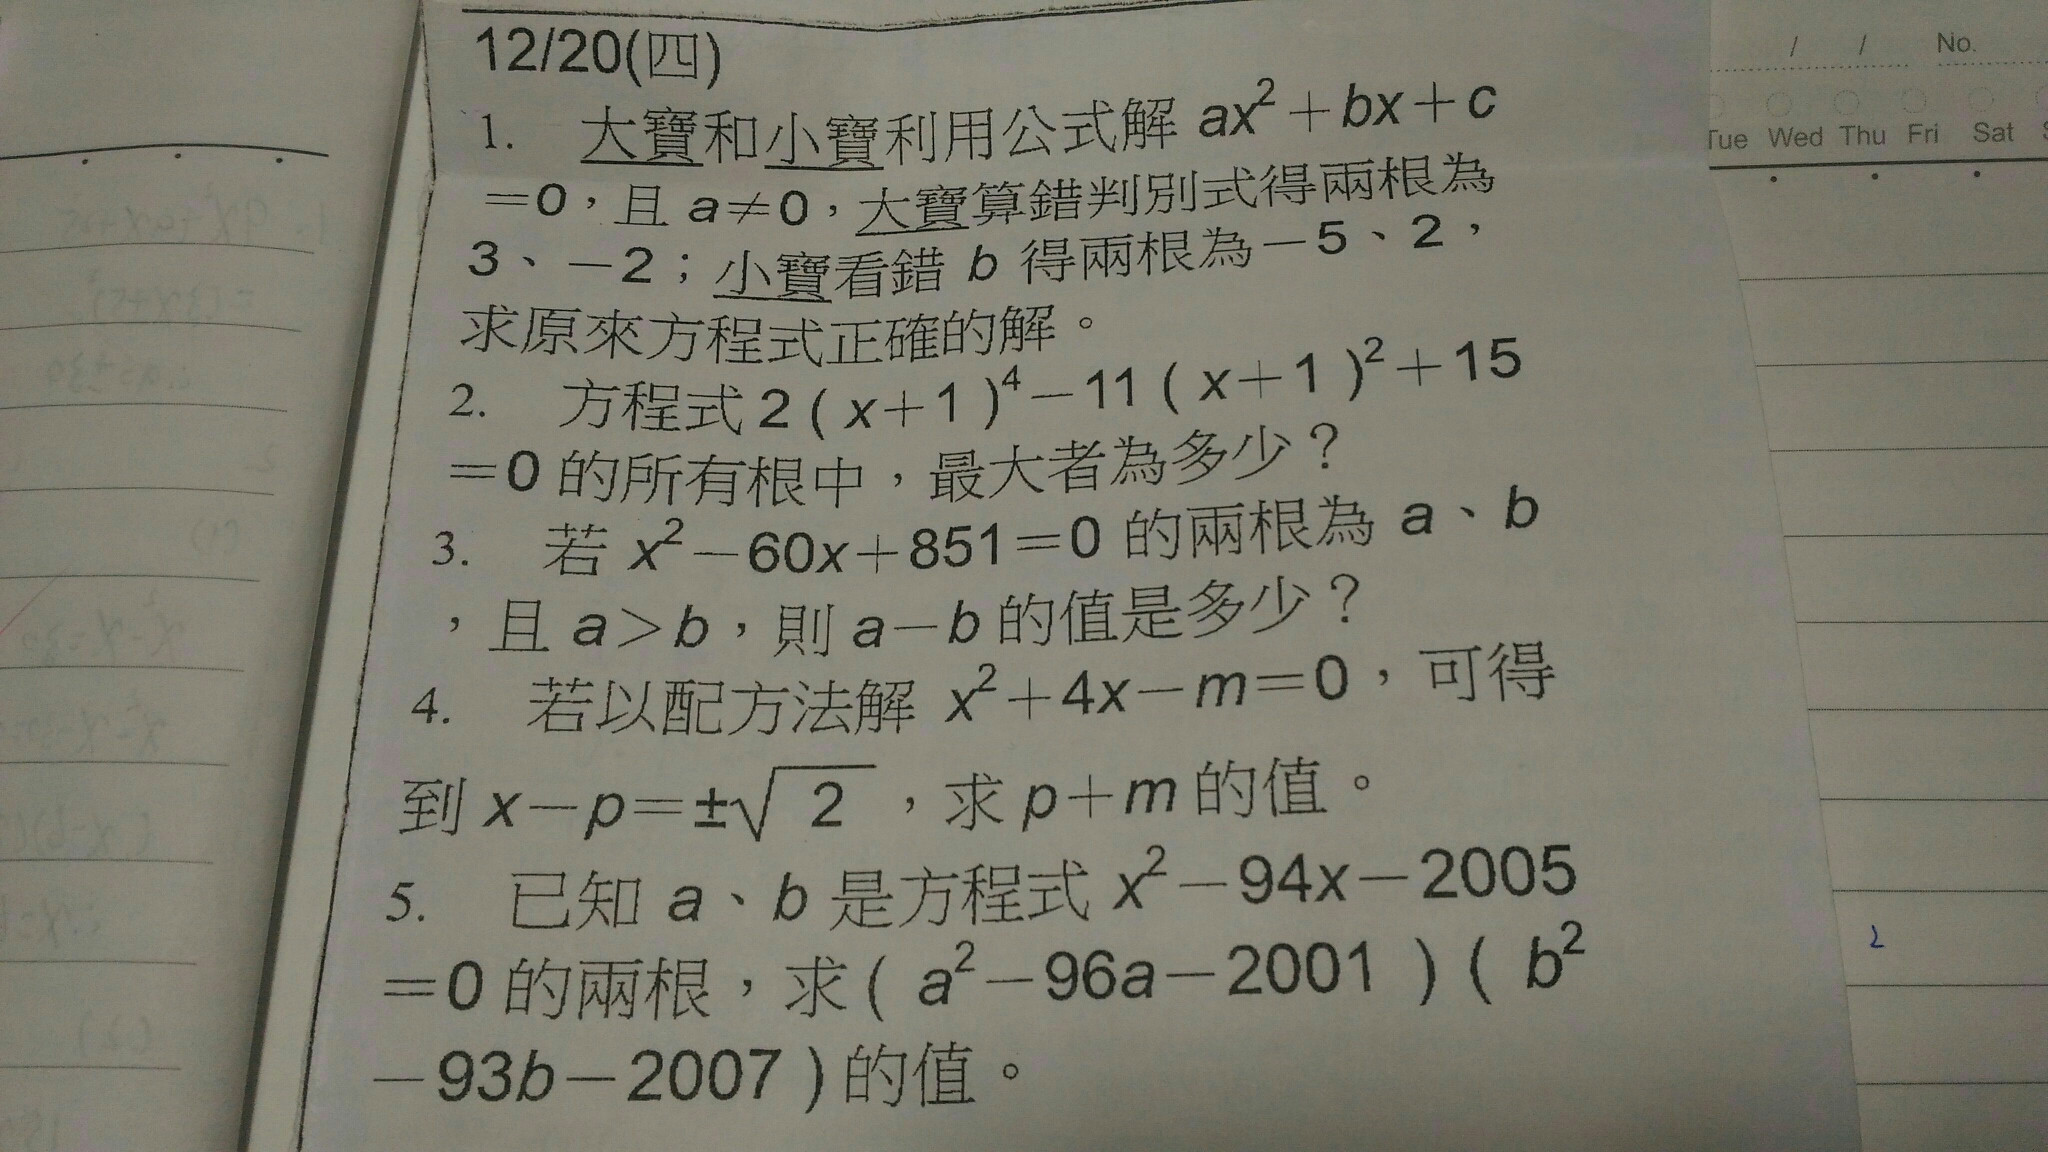 12/20(四)
1. 大寶和小寶利用公式解 ax²+bx+c
=0,且 a≠0,大寶算錯判別式得兩根為
3、-2;小寶看錯 b 得兩根為-5、2,
求原來方程式正確的解。
2. 方程式 2(x+1)⁴-11(x+1)²+15
=0 的所有根中,最大者為多少?
3. 若 x²-60x+851=0 的兩根為 a、b
,且 a>b,則 a-b 的值是多少?
4. 若以配方法解 x²+4x-m=0,可得
到 x-p=±√2,求 p+m 的值。
5. 已知 a、b 是方程式 x²-94x-2005
=0 的兩根,求(a²-96a-2001)(b²
-93b-2007)的值。
/ / No.
Tue Wed Thu Fri Sat
2